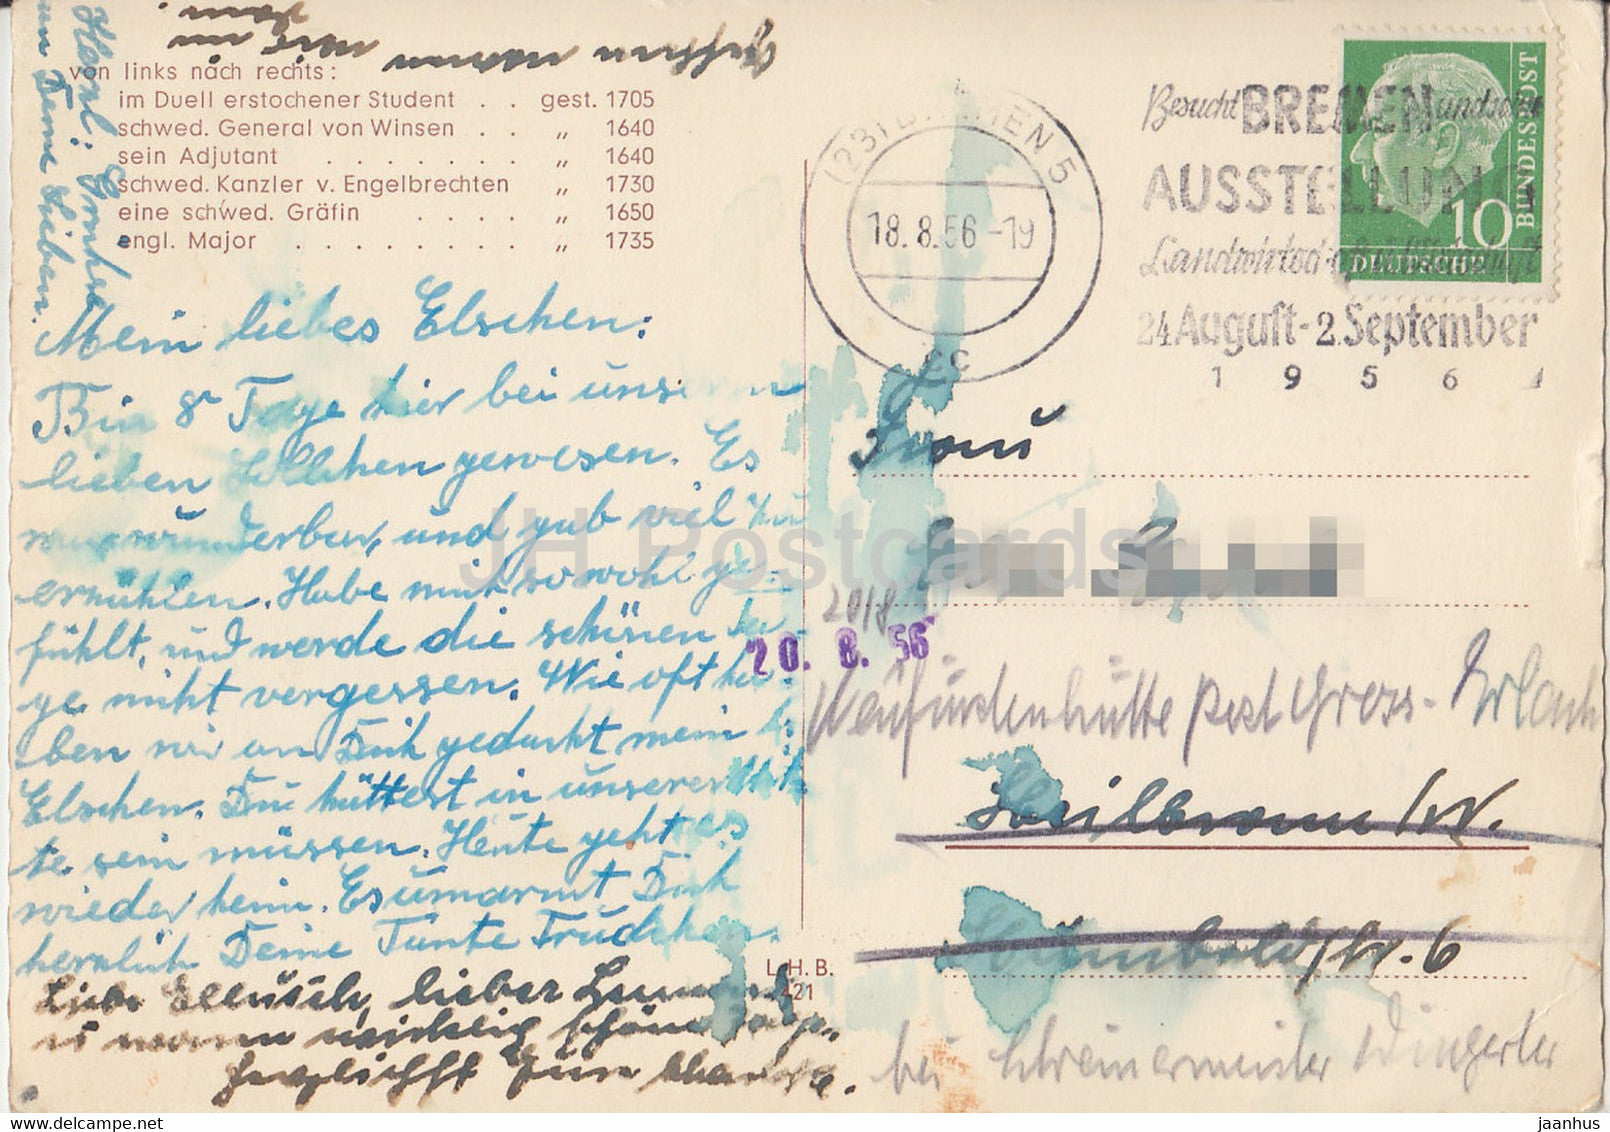 von links nach rechts:
im Duell erstochener Student . . gest. 1705
schwed. General von Winsen . . „ 1640
sein Adjutant . . . . . . . . „ 1640
schwed. Kanzler v. Engelbrechten „ 1730
eine schwed. Gräfin . . . . „ 1650
engl. Major . . . . . . . . „ 1735
Mein liebes Elschen:
Bin 8 Tage hier bei unse
lieben gewesen. Es
war wunderbar, und gab viel zu
erzählen. Habe mich so wohl ge-
fühlt, und werde die schönen Ta-
ge nicht vergessen. Wie oft ha-
ben wir an Dich gedacht mein
Elschen. Du hättest in unserer Mit-
te sein müssen. Heute geht es
wieder heim. Es umarmt Dich
herzlich Deine Tante Trudchen.
Liebe lieber
u waren wirklich schöne Tage.
herzlichst
L.H.B.
421
(23) BREMEN 5
18.8.56-19
cc
Besucht BREMEN und seine
AUSSTELLUNG
Landwirtschaft
24. August-2. September
1956
DEUTSCHE BUNDESPOST
10
Frau
20/8
20. 8. 56
Neufürstenhütte Post Gross-Erlach
Heilbronn /W.
str. 6
bei Schreinermeister Wingerter
JH Postcards
jaanhus